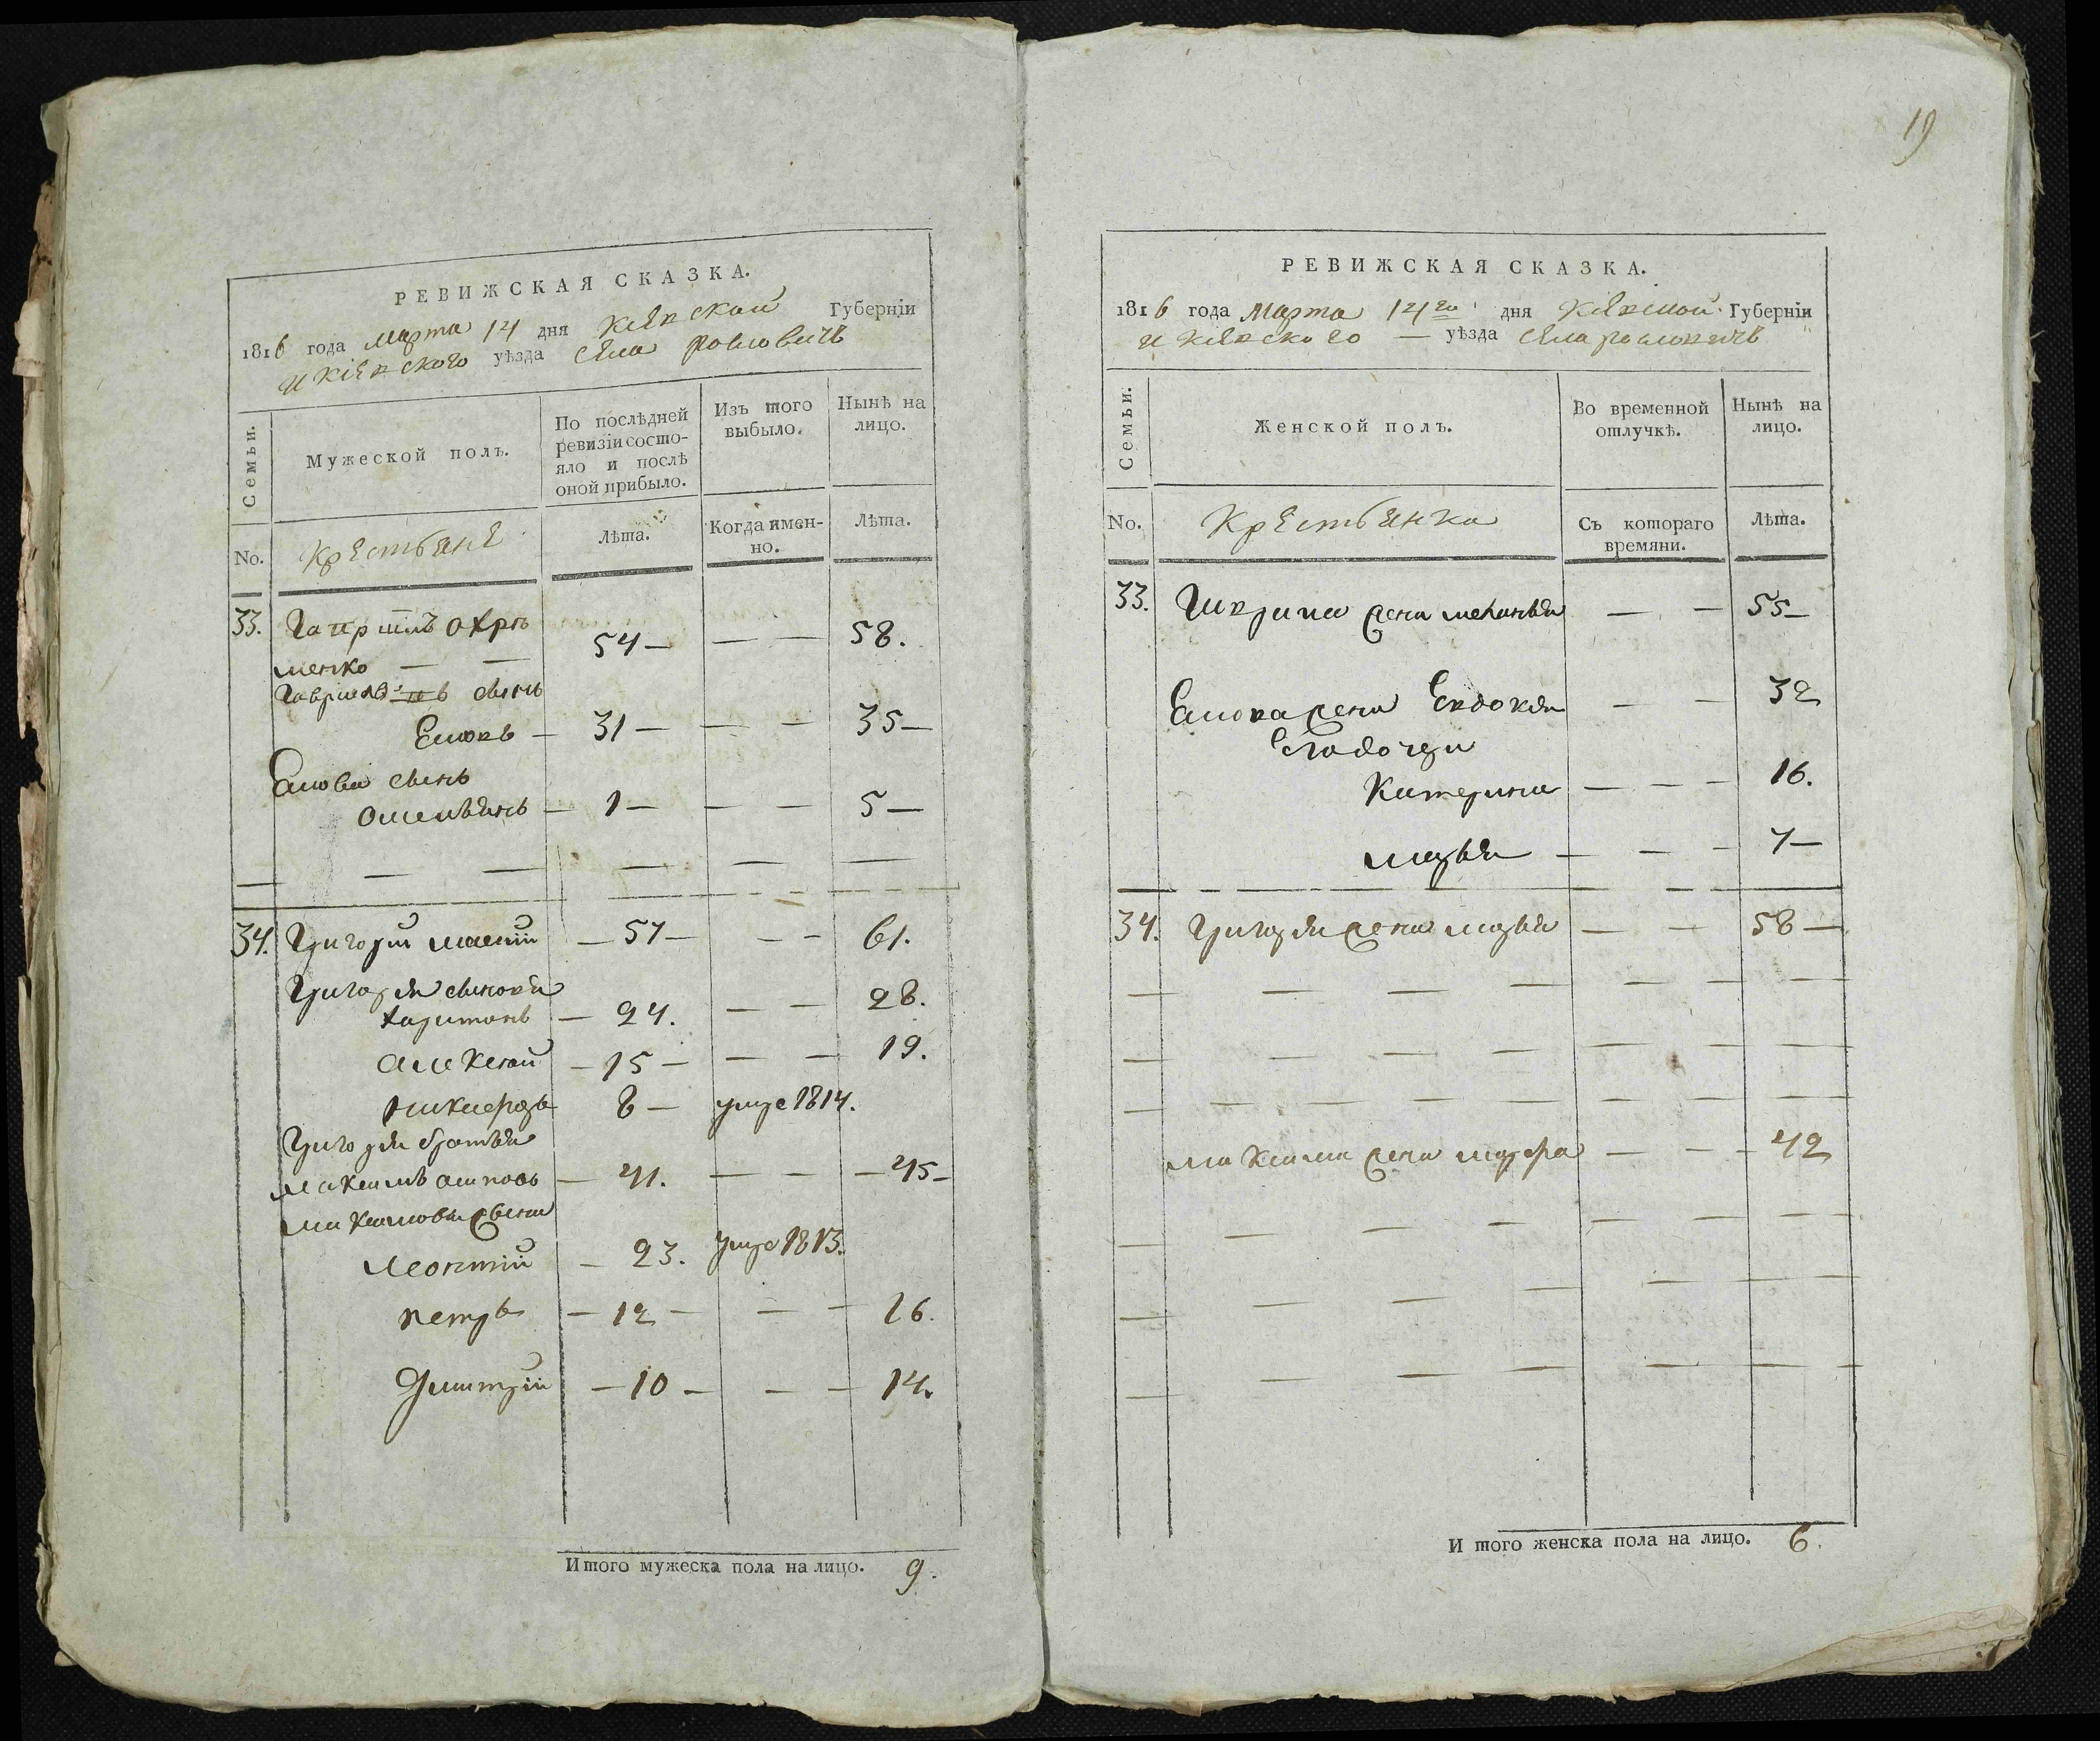 19
РЕВИЖСКАЯ СКАЗКА.
1816 года марта 14 дня Кіевской Губерніи
и кіевского уѣзда села
Семьи.
Мужеской полъ.
По послѣдней ревизіи состояло и послѣ оной прибыло.
Изъ того выбыло.
Нынѣ на лицо.
No.
Крестьяне
Лѣта.
Когда имен-
но.
Лѣта.
33. Гаврiилъ Охрѣ
менко — — 54 — — — 58.
сынъ
Емовъ — 31 — — — 35 —
Емова сынъ
Омельянъ — 1 — — — 5 —
34. Григорій — 57 — — — 61.
Григорія сыновья
Харитонъ — 24. — — 28.
Алексей — 15 — — — 19.
Никифоръ 8 — умре 1814.
Григорія братья
Максимъ Осиповъ — 41. — — — 45 —
Максимовы сыны
Леонтій — 23. умре 1813.
петръ — 12 — — — 16.
Дмитрій — 10 — — — 14.
Итого мужеска пола на лицо. 9.
РЕВИЖСКАЯ СКАЗКА.
1816 года Марта 14го дня Кіевской Губерніи
и Кіевского — уѣзда села
Семьи.
Женской полъ.
Во временной
отлучкѣ.
Нынѣ на
лицо.
No.
Крестьянка
Съ котораго
времяни.
Лѣта.
33. Гаврила жена меланья — — 55 —
Емова жена Евдокія — — 32
Его дочери
Катерина — — — 16.
марья — — — 7 —
34. Григорія жена марья — — 58 —
максима жена марфа — — — 42
И того женска пола на лицо. 6.